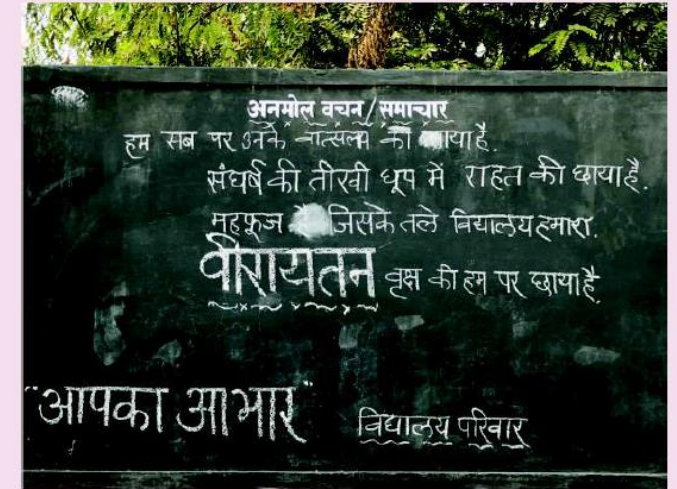 अनमोल वचन/समाचार
हम सब पर उनके वात्सल्य की है.
संघर्ष की तीखी धूप में राहत की छाया है.
महफूज है जिसके तले विद्यालय हमारा.
वीरायतन वृक्ष की हम पर छाया है
"आपका आभार"
विद्यालय परिवार